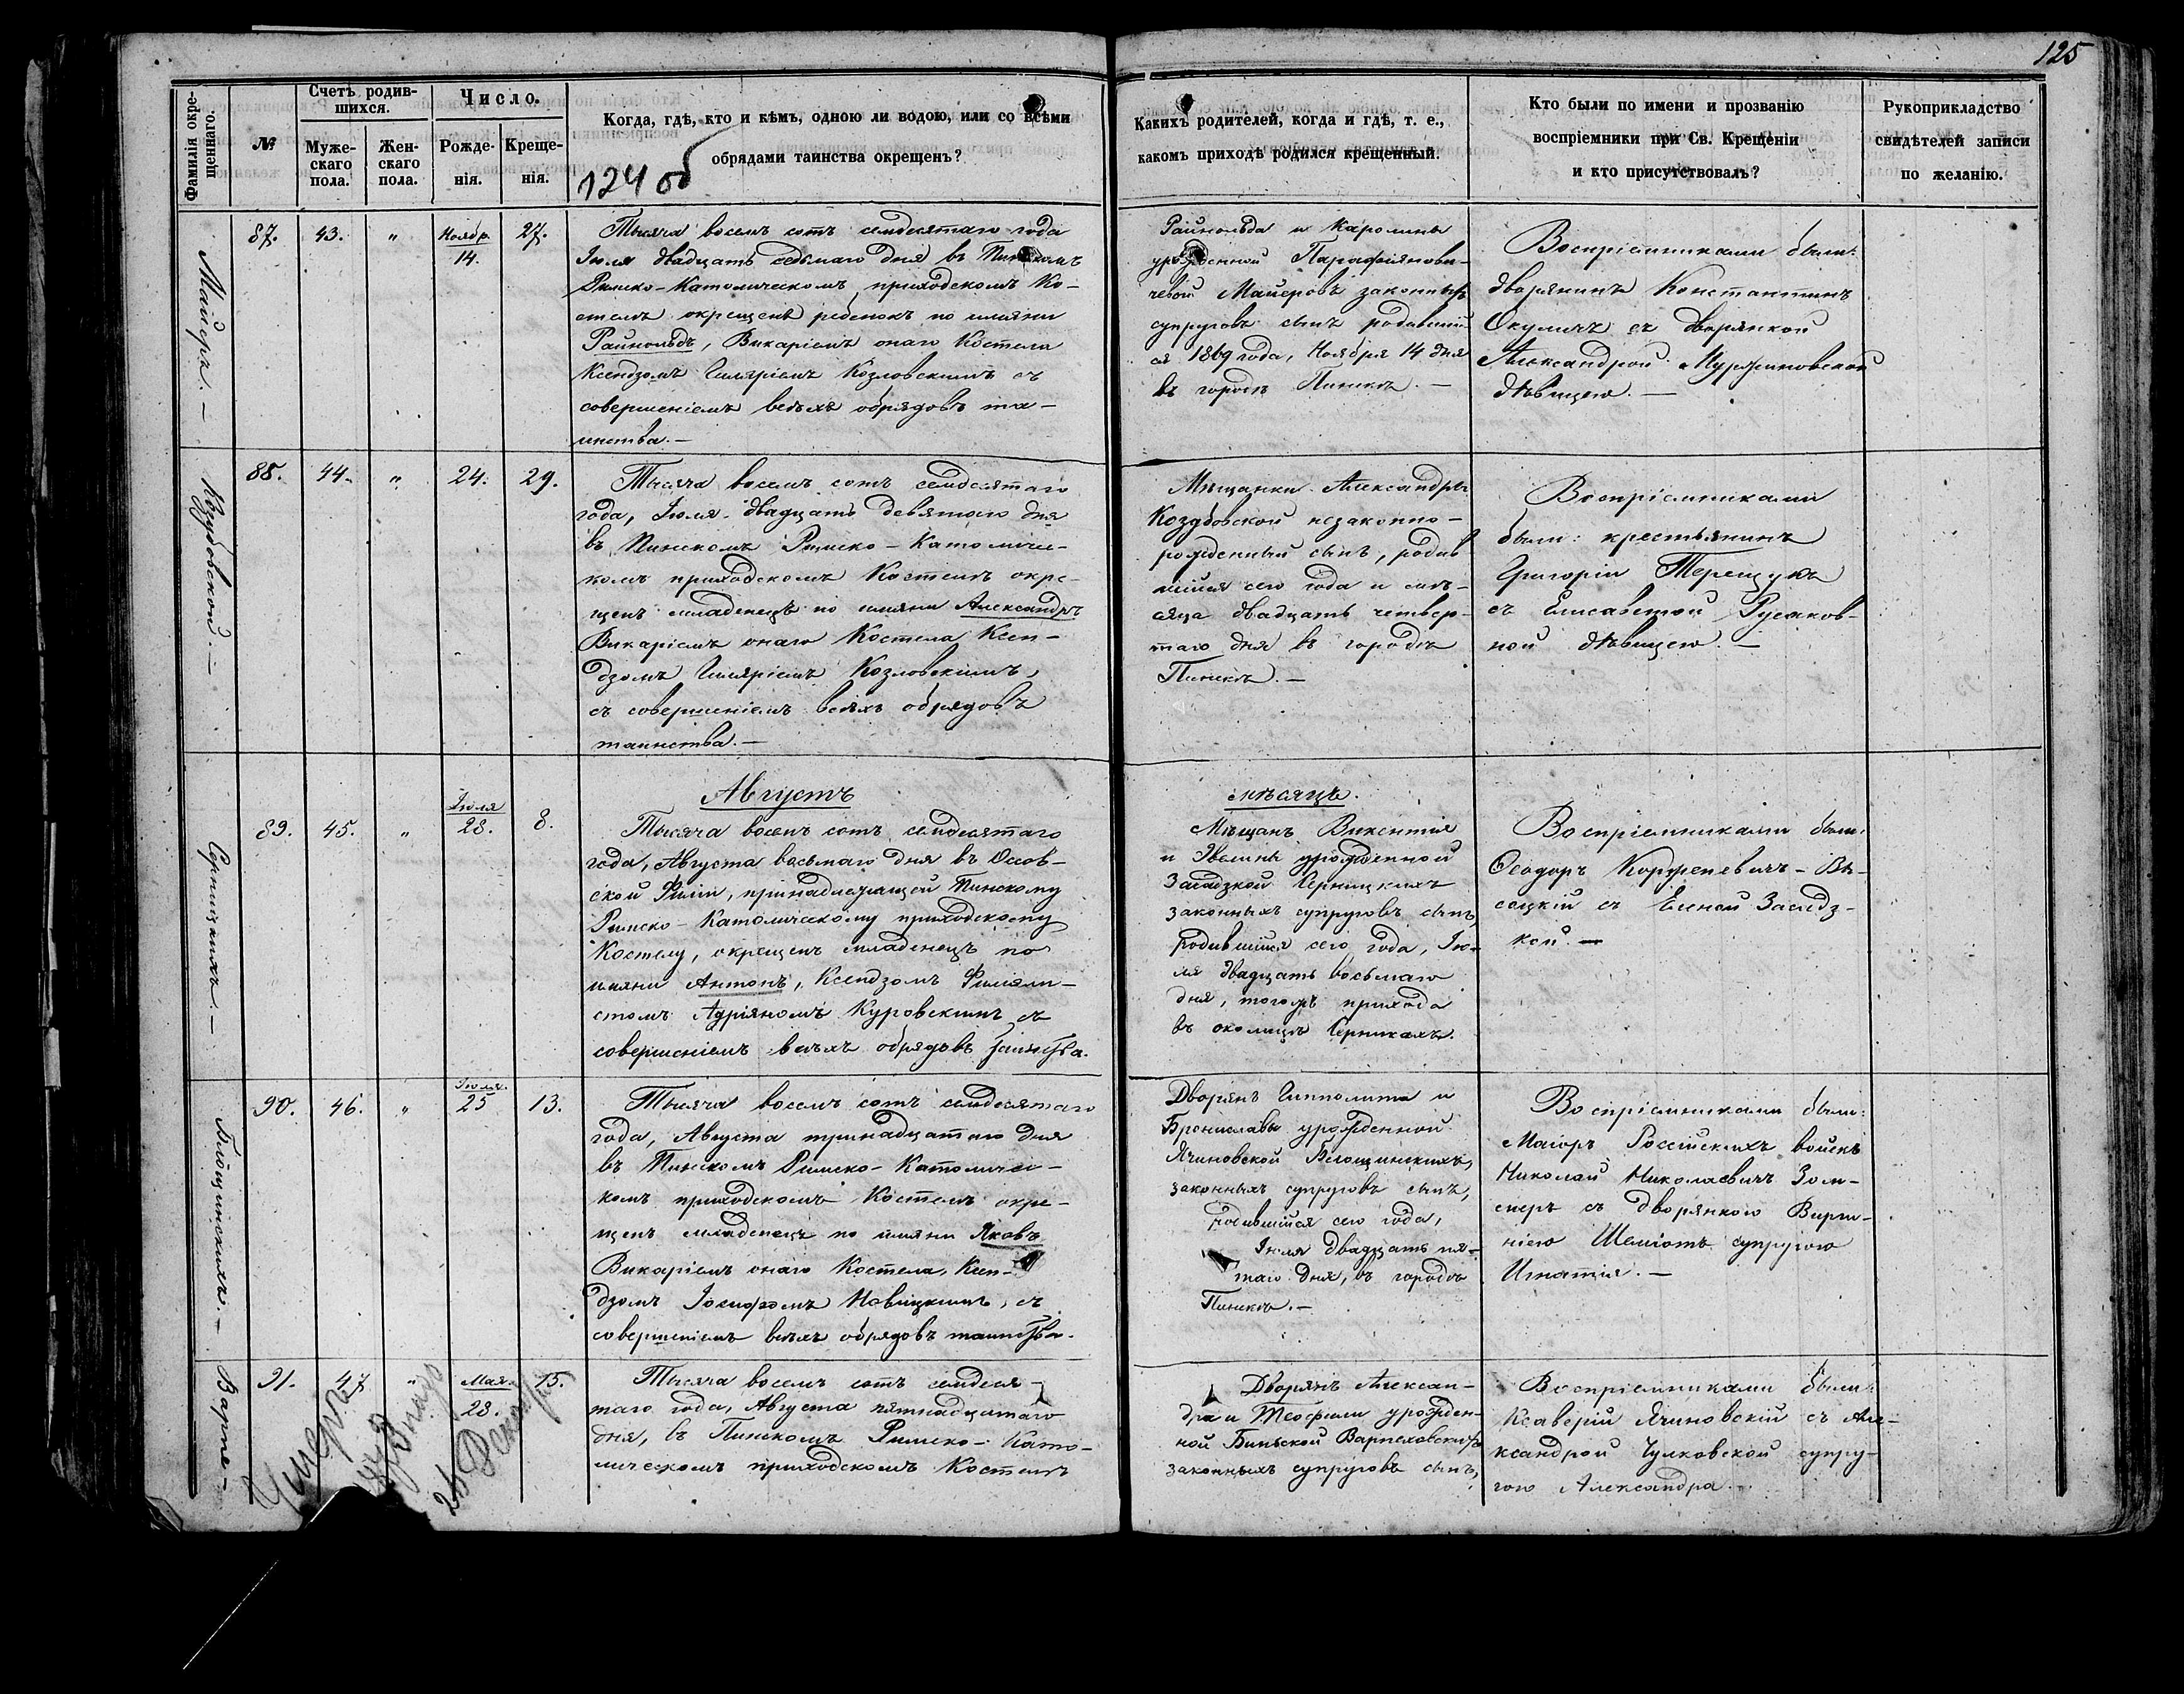 125
Фамилія окре-
щеннаго.
№
Счетъ родив-
шихся.
Муже-
скаго
пола.
Жен-
скаго
пола.
Число.
Рожде-
нія.
Креще-
нія.
Когда, гдѣ, кто и кѣмъ, одною ли водою, или со всѣми
обрядами таинства окрещенъ?
124 об
Какихъ родителей, когда и гдѣ, т. е.,
какомъ приходѣ родился крещенный.
Кто были по имени и прозванію
воспріемники при Св. Крещеніи
и кто присутствовалъ?
Рукоприкладство
свидѣтелей записи
по желанію.
Майеръ.—
87.
43.
"
Ноябр.
14.
27.
Тысяча восемь сотъ семдесятаго года
Іюля двадцать седьмаго дня въ Пинскомъ
Римско-Католическомъ приходскомъ Ко-
стелѣ окрещенъ ребенокъ по имяни
Райнольдъ, Викаріемъ онаго Костела
Ксендзомъ Гиляріемъ Козловскимъ съ
совершеніемъ всѣхъ обрядовъ та-
инства.—
Райнольда и Каролины
урожденной Парафіянови-
чевой Майеровъ законныхъ
супруговъ сынъ родившій-
ся 1869 года, Ноября 14 дня
въ городѣ Пинскѣ.—
Воспріемниками были:
дворянинъ Константинъ
Окуличъ съ дворянкой
Александрой
дѣвицею.—
Козубовской.—
88.
44.
"
24.
29.
Тысяча восемь сотъ семдесятаго
года, Іюля двадцать девятаго дня
въ Пинскомъ Римско-Католичес-
комъ приходскомъ Костелѣ окре-
щенъ младенецъ по имяни Александръ
Викаріемъ онаго Костела Ксен-
дзомъ Гиляріемъ Козловскимъ,
съ совершеніемъ всѣхъ обрядовъ
таинства.—
Мѣщанки Александры
Козубовской незаконно-
рожденный сынъ, родив
шійся сего года и мѣ-
сяца двадцать четвер-
таго дня въ городѣ
Пинскѣ.—
Воспріемниками
были: крестьянинъ
Григорій Терещукъ
съ Елисаветой Русаков-
ной дѣвицею.—
Августъ
мѣсяцъ.
Серницкихъ.—
89.
45.
"
Іюля
28.
8.
Тысяча восемь сотъ семдесятаго
года, Августа восьмаго дня въ Осов-
ской Филіи, принадлежащей Пинскому
Римско-Католическому приходскому
Костелу, окрещенъ младенецъ по
имяни Антонъ, Ксендзомъ Филіали-
стомъ Адріяномъ Куровскимъ съ
совершеніемъ всѣхъ обрядовъ таинства.
Мѣщанъ Викентія
и Эвелины урожденной
Засадзкой Серницкихъ
законныхъ супруговъ сынъ,
родившійся сего года, Ію-
ля двадцать восьмаго
дня, тогожъ прихода
въ околицѣ Серникахъ.
Воспріемниками были:
Ѳеодоръ Корженевичъ-Вы-
соцкій съ Еленой Засадз-
кой.—
Бѣлощинскихъ.—
90.
46.
"
Іюля.
25
13.
Тысяча восемь сотъ семдесятаго
года, Августа тринадцатаго дня
въ Пинскомъ Римско-Католичес-
комъ приходскомъ Костелѣ окре-
щенъ младенецъ по имяни Яковъ
Викаріемъ онаго Костела, Ксен-
дзомъ Іосифомъ Новицкимъ, съ
совершеніемъ всѣхъ обрядовъ таинства.
Дворянъ Ипполита и
Брониславы урожденной
Ячиновской Бѣлощинскихъ,
законныхъ супруговъ сынъ,
родившійся сего года,
Іюля двадцать пя-
таго дня, въ городѣ
Пинскѣ.—
Воспріемниками были:
Маіоръ Россійскихъ войскъ
Николай Николаевичъ
съ дворянкою Вирги-
ніею Шеміотъ супругою
Игнатія.—
Варпе-
91.
47
"
Мая.
28.
15.
Тысяча восемь сотъ семдеся-
таго года, Августа пятнадцатаго
дня, въ Пинскомъ Римско-Като-
лическомъ приходскомъ Костелѣ
Дворянъ Алексан-
дра и Теофили урожден-
ной Варпеховскихъ
законныхъ супруговъ сынъ,
Воспріемниками были:
Ксаверій Ячиновскій съ Але-
ксандрой Чулковской супру-
гою Александра.